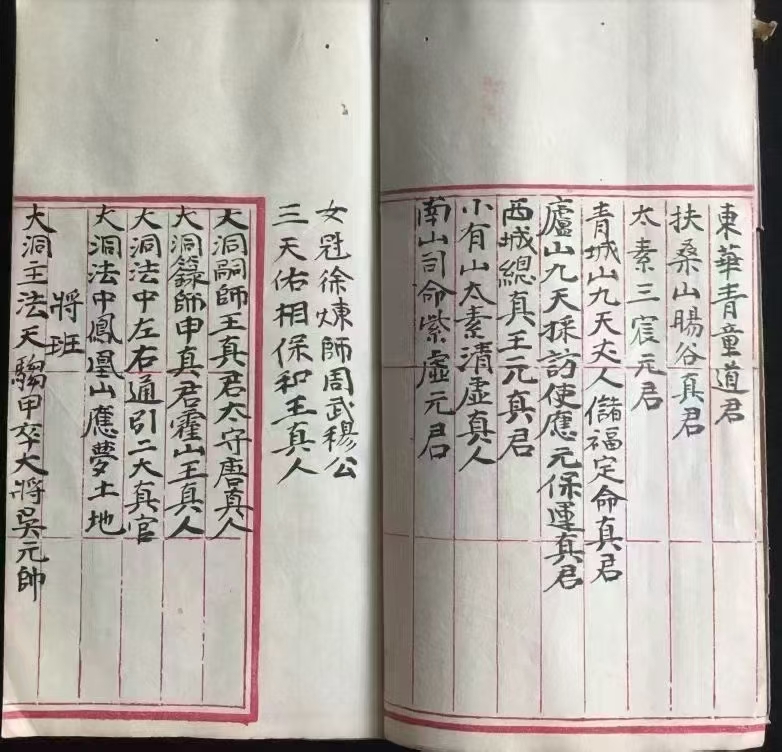 東華青童道君
扶桑山暘谷真君
太素三宸元君
青城山九天丈人儲福定命真君
廬山九天採訪使應元保運真君
西城總真王元真君
小有山太素清虛真人
南山司命紫虛元君
女冠徐煉師周武穆公
三天佑相保和王真人
大洞嗣師王真君太守唐真人
大洞籙師申真君霍山王真人
大洞法中左右通引二大真官
大洞法中鳳凰山應夢土地
將班
大洞主法天騶甲卒大將吳元帥